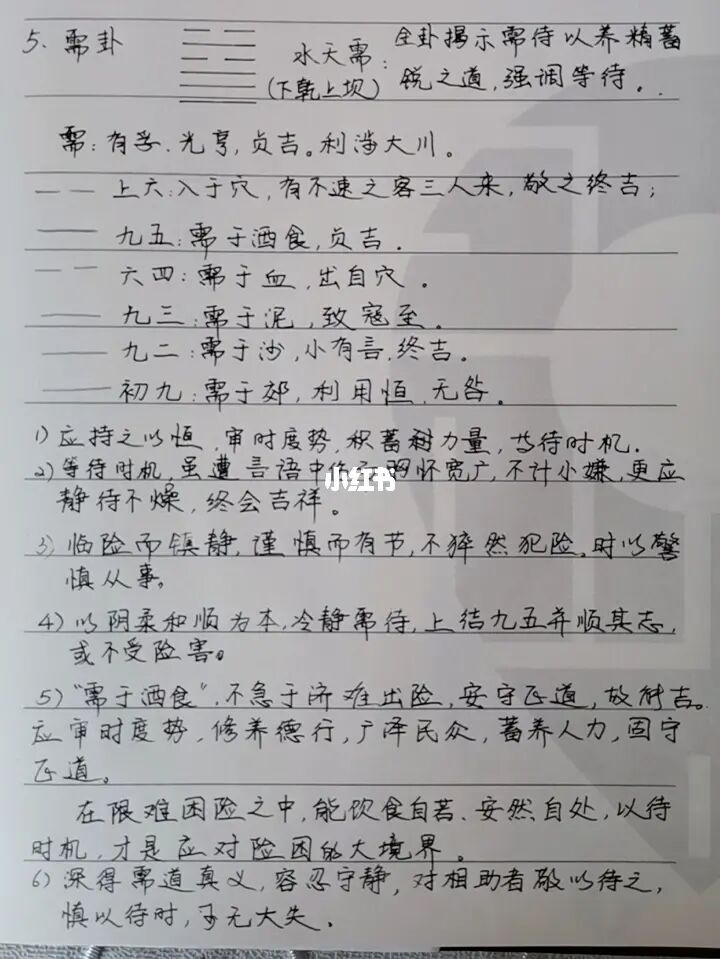 5、需卦
水天需:
(下乾上坝)
全卦揭示需待以养精蓄
锐之道,强调等待。
需:有孚、光亨,贞吉。利涉大川。
上六:入于穴,有不速之客三人来,敬之终吉;
九五:需于酒食,贞吉.
六四:需于血,出自穴。
九三:需于泥,致寇至。
九二:需于沙,小有言,终吉。
初九:需于郊,利用恒,无咎。
1)应持之以恒,审时度势,积蓄耐力量,等待时机.
2)等待时机,虽遭言语中怀宽广,不计小嫌,更应
静待不燥,终会吉祥。
小红书
3)临险而镇静,谨慎而有节,不猝然犯险,时以警
慎从事。
4)以阴柔和顺为本,冷静需待,上结九五并顺其志,
或不受险害。
5)“需于酒食”,不急于济难出险,安守正道,故能吉。
应审时度势,修养德行,广泽民众,蓄养人力,固守
正道。
在限难困险之中,能饮食自若、安然自处,以待
时机,才是应对险困的大境界。
6)深得需道真义,容忍守静,对相助者敬以待之,
慎以待时,可无大失.